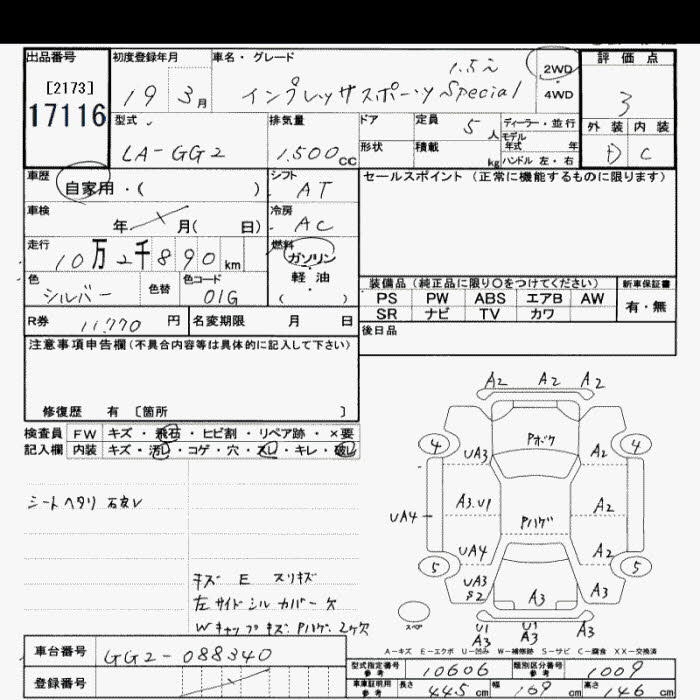 出品番号
[2173]
17116
初度登録年月
19 3月
車名・グレード
1.5i
インプレッサスポーツ Special
2WD
4WD
評価点
3
外装 内装
D C
型式
LA-GG2
排気量
1.500cc
ドア
定員 5人
形状
積載 kg
ディーラー・並行
モデル
年式 年
ハンドル 左・右
車歴
自家用・( )
シフト
AT
車検
年 月( 日)
冷房
AC
走行
10万2千890km
燃料
ガソリン
軽油
( )
色
シルバー
色替
色コード
01G
R券 11,770円
名変期限 月 日
セールスポイント (正常に機能するものに限ります)
装備品 (純正品に限り〇をつけてください)
PS PW ABS エアB AW
SR ナビ TV カワ
新車保証書
有・無
後日品
注意事項申告欄(不具合内容等は具体的に記入して下さい)
修復歴 有 〔箇所 〕
検査員
記入欄
FW キズ・飛石・ヒビ割・リペア跡・×要
内装 キズ・汚レ・コゲ・穴・スレ・キレ・破レ
シートヘタリ
キズ E スリキズ
左サイドシルカバー欠
Wキャップキズ・Pハゲ・2ヶ欠
A2 A2 A2
4 4
Pボケ
UA3 A2
A3.U1 A2
UA4
Pハゲ
UA4 A2
5 5
UA3
S2
A3 A3
U1 U1
A3 A3 A3
スペア
A-キズ E-エクボ U-凹み W-補修跡 S-サビ C-腐食 XX-交換済
車台番号 GG2-088340
登録番号
型式指定番号
参考
10606
類別区分番号
参考
1009
車庫証明用
参考
長さ 445cm
幅 169cm
高さ 146cm